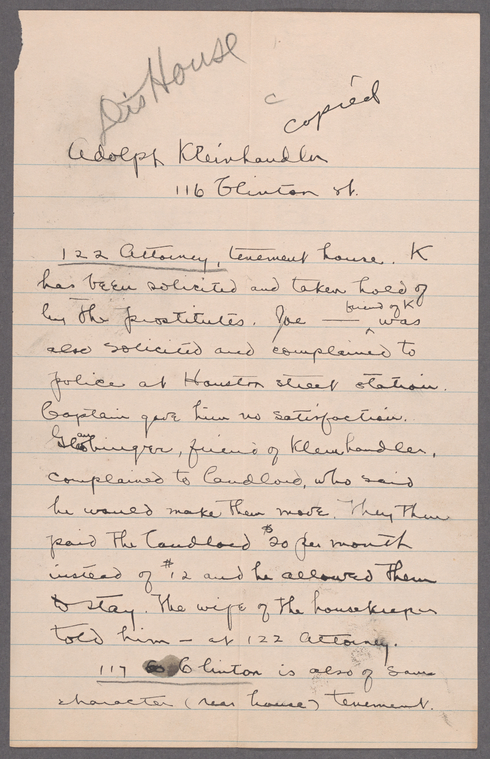 Dis House
copied
Adolph Kleinhandler
116 Clinton st.
122 Attorney, tenement house. K
has been solicited and taken hold of
by the prostitutes. Joe — friend of K was
also solicited and complained to
police at Houston street station.
Captain gave him no satisfaction.
friend of Kleinhandler,
complained to landlord, who said
he would make them move. They then
paid the landlord $20 per month
instead of $12 and he allowed them
to stay. The wife of the housekeeper
told him – at 122 Attorney.
117 Clinton is also of same
character (rear house) tenement.